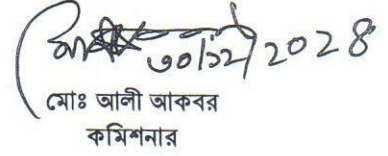 ৩০/১২/২০২৪
মোঃ আলী আকবর
কমিশনার